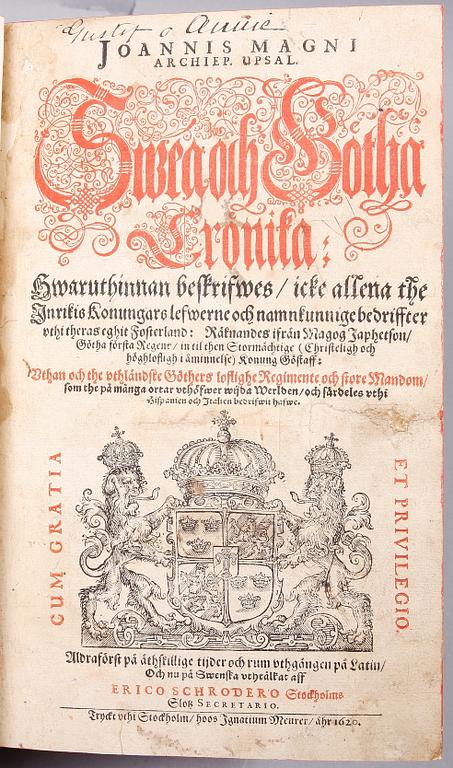 Gustaf o Annie
JOANNIS MAGNI
ARCHIEP. UPSAL.
Swea och Götha
Crönika:
Hwaruthinnan beskrifwes / icke allena the
Inrikis Konungars lefwerne och namnkunnige bedriffter
vthi theras eghit Fosterland: Räknandes ifrån Magog Japhetson /
Götha första Regent / in til then Stormächtige (Christeligh och
höghlofligh i åminnelse) Konung Göstaff:
Vthan och the vthländske Göthers loflighe Regimente och store Mandom /
som the på många ortar vthöfwer wijda Werlden / och särdeles vthi
Hispanien och Italien bedrifwit hafwe.
CUM GRATIA
ET PRIVILEGIO.
Aldraförst på åthskillige tijder och rum vthgången på Latin /
Och nu på Swenska vthtålkat aff
ERICO SCHRODERO Stockholms
Slotz SECRETARIO.
Tryckt vthi Stockholm / hoos Ignatium Meurer / åhr 1620.